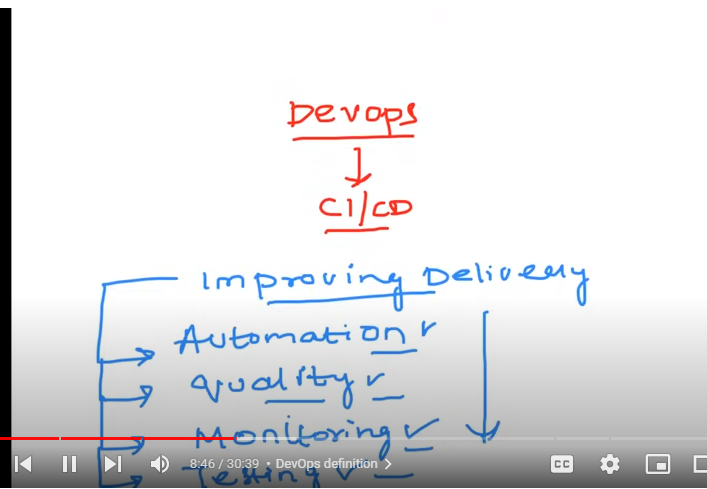 Devops
CI/CD
Improving Delivery
Automation
Quality
Monitoring
Testing
8:46 / 30:39 • DevOps definition >
CC